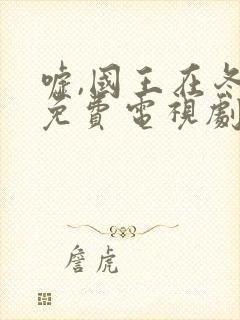 嘘,國王在冬
免費電視劇
詹虎